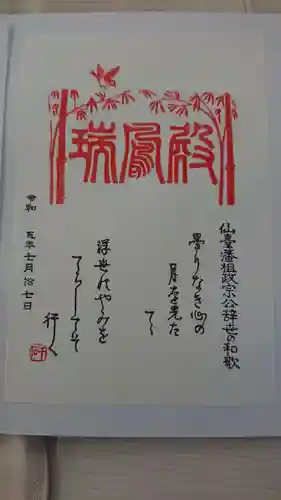 瑞鳳殿
仙臺藩祖政宗公辞世の和歌
曇りなき心の
月を先た
てゝ
浮世のやみを
てらしてそ
行く
令和 五年七月拾七日